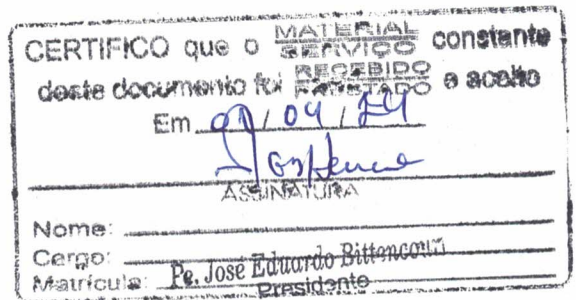 CERTIFICO que o MATERIAL SERVIÇO constante
deste documento foi RECEBIDO PRESTADO e aceito
Em / 04 /
ASSINATURA
Nome:
Cargo:
Matrícula: Pe. José Eduardo Bittencourt
Presidente